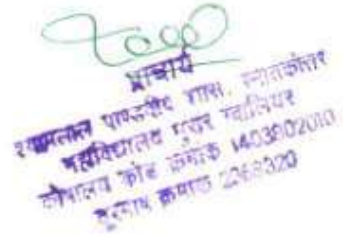 प्राचार्य
श्यामलाल पाण्डवीय शास. स्नातकोत्तर
महाविद्यालय मुरार ग्वालियर
कोषालय कोड क्रमांक 1403902010
दूरभाष क्रमांक